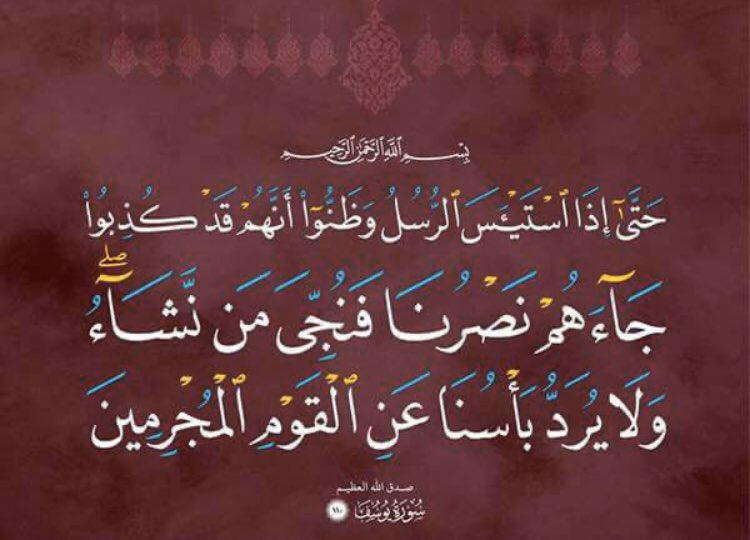 بِسْمِ ٱللَّهِ ٱلرَّحْمَٰنِ ٱلرَّحِيمِ
حَتَّىٰٓ إِذَا ٱسْتَيْـَٔسَ ٱلرُّسُلُ وَظَنُّوٓا۟ أَنَّهُمْ قَدْ كُذِبُوا۟
جَآءَهُمْ نَصْرُنَا فَنُجِّىَ مَن نَّشَآءُ ۖ
وَلَا يُرَدُّ بَأْسُنَا عَنِ ٱلْقَوْمِ ٱلْمُجْرِمِينَ
صدق الله العظيم
سُورَةُ يُوسُفَ ١١٠